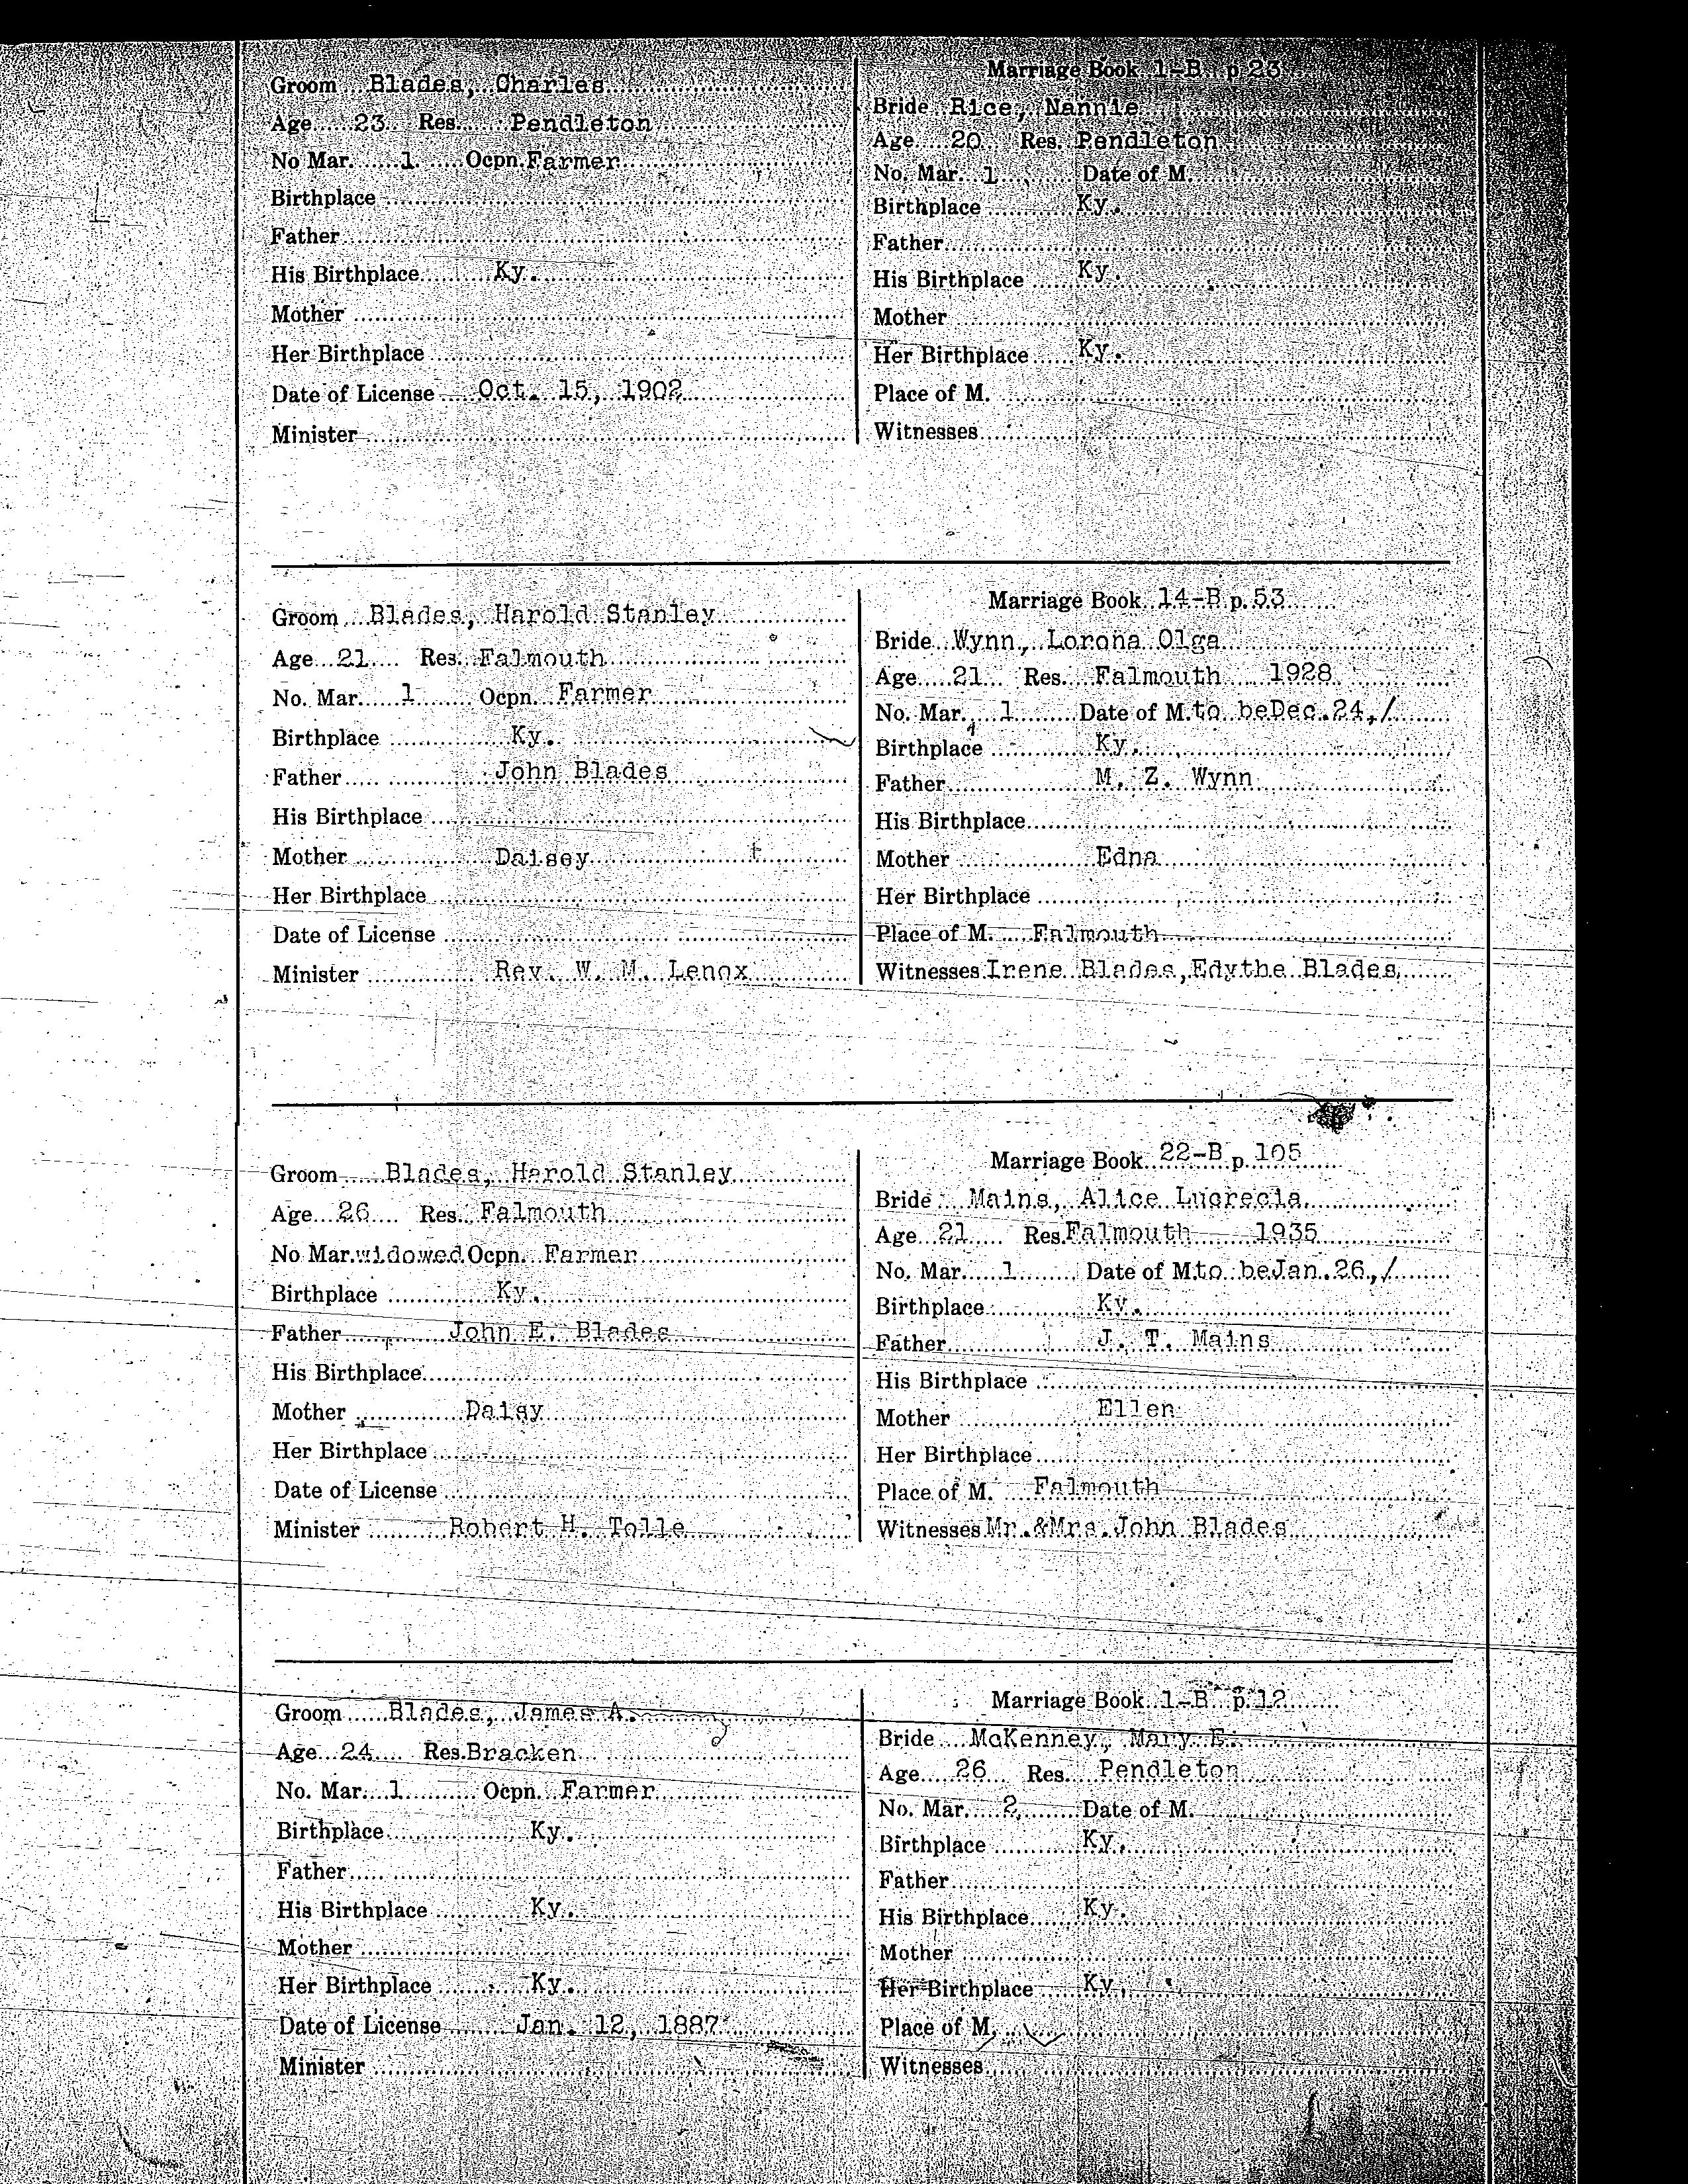 Groom Blades, Charles
Age 23 Res. Pendleton
No Mar. 1 Ocpn. Farmer
Birthplace
Father
His Birthplace Ky.
Mother
Her Birthplace
Date of License Oct. 15, 1902
Minister
Marriage Book 1-B p 23
Bride Rice, Nannie
Age 20 Res. Pendleton
No. Mar. 1 Date of M.
Birthplace Ky.
Father
His Birthplace Ky.
Mother
Her Birthplace Ky.
Place of M.
Witnesses
Groom Blades, Harold Stanley
Age 21 Res. Falmouth
No. Mar. 1 Ocpn. Farmer
Birthplace Ky.
Father John Blades
His Birthplace
Mother Daisey
Her Birthplace
Date of License
Minister Rev. W. M. Lenox
Marriage Book 14-B p. 53
Bride Wynn, Lorona Olga
Age 21 Res. Falmouth 1928
No. Mar. 1 Date of M. to be Dec. 24, /
Birthplace Ky.
Father M. Z. Wynn
His Birthplace
Mother Edna
Her Birthplace
Place of M. Falmouth
Witnesses Irene Blades, Edythe Blades,
Groom Blades, Harold Stanley
Age 26 Res. Falmouth
No Mar. widowed Ocpn. Farmer
Birthplace Ky.
Father John E. Blades
His Birthplace
Mother Daisy
Her Birthplace
Date of License
Minister Robert H. Tolle
Marriage Book 22-B p. 105
Bride Mains, Alice Lucrecia
Age 21 Res. Falmouth 1935
No. Mar. 1 Date of M. to be Jan. 26, /
Birthplace Ky.
Father J. T. Mains
His Birthplace
Mother Ellen
Her Birthplace
Place of M. Falmouth
Witnesses Mr. & Mrs. John Blades
Groom Blades, James A.
Age 24 Res. Bracken
No. Mar. 1 Ocpn. Farmer
Birthplace Ky.
Father
His Birthplace Ky.
Mother
Her Birthplace Ky.
Date of License Jan. 12, 1887
Minister
Marriage Book 1-B p. 12
Bride McKenney, Mary E.
Age 26 Res. Pendleton
No. Mar. 2 Date of M.
Birthplace Ky.
Father
His Birthplace Ky.
Mother
Her Birthplace Ky.
Place of M.
Witnesses